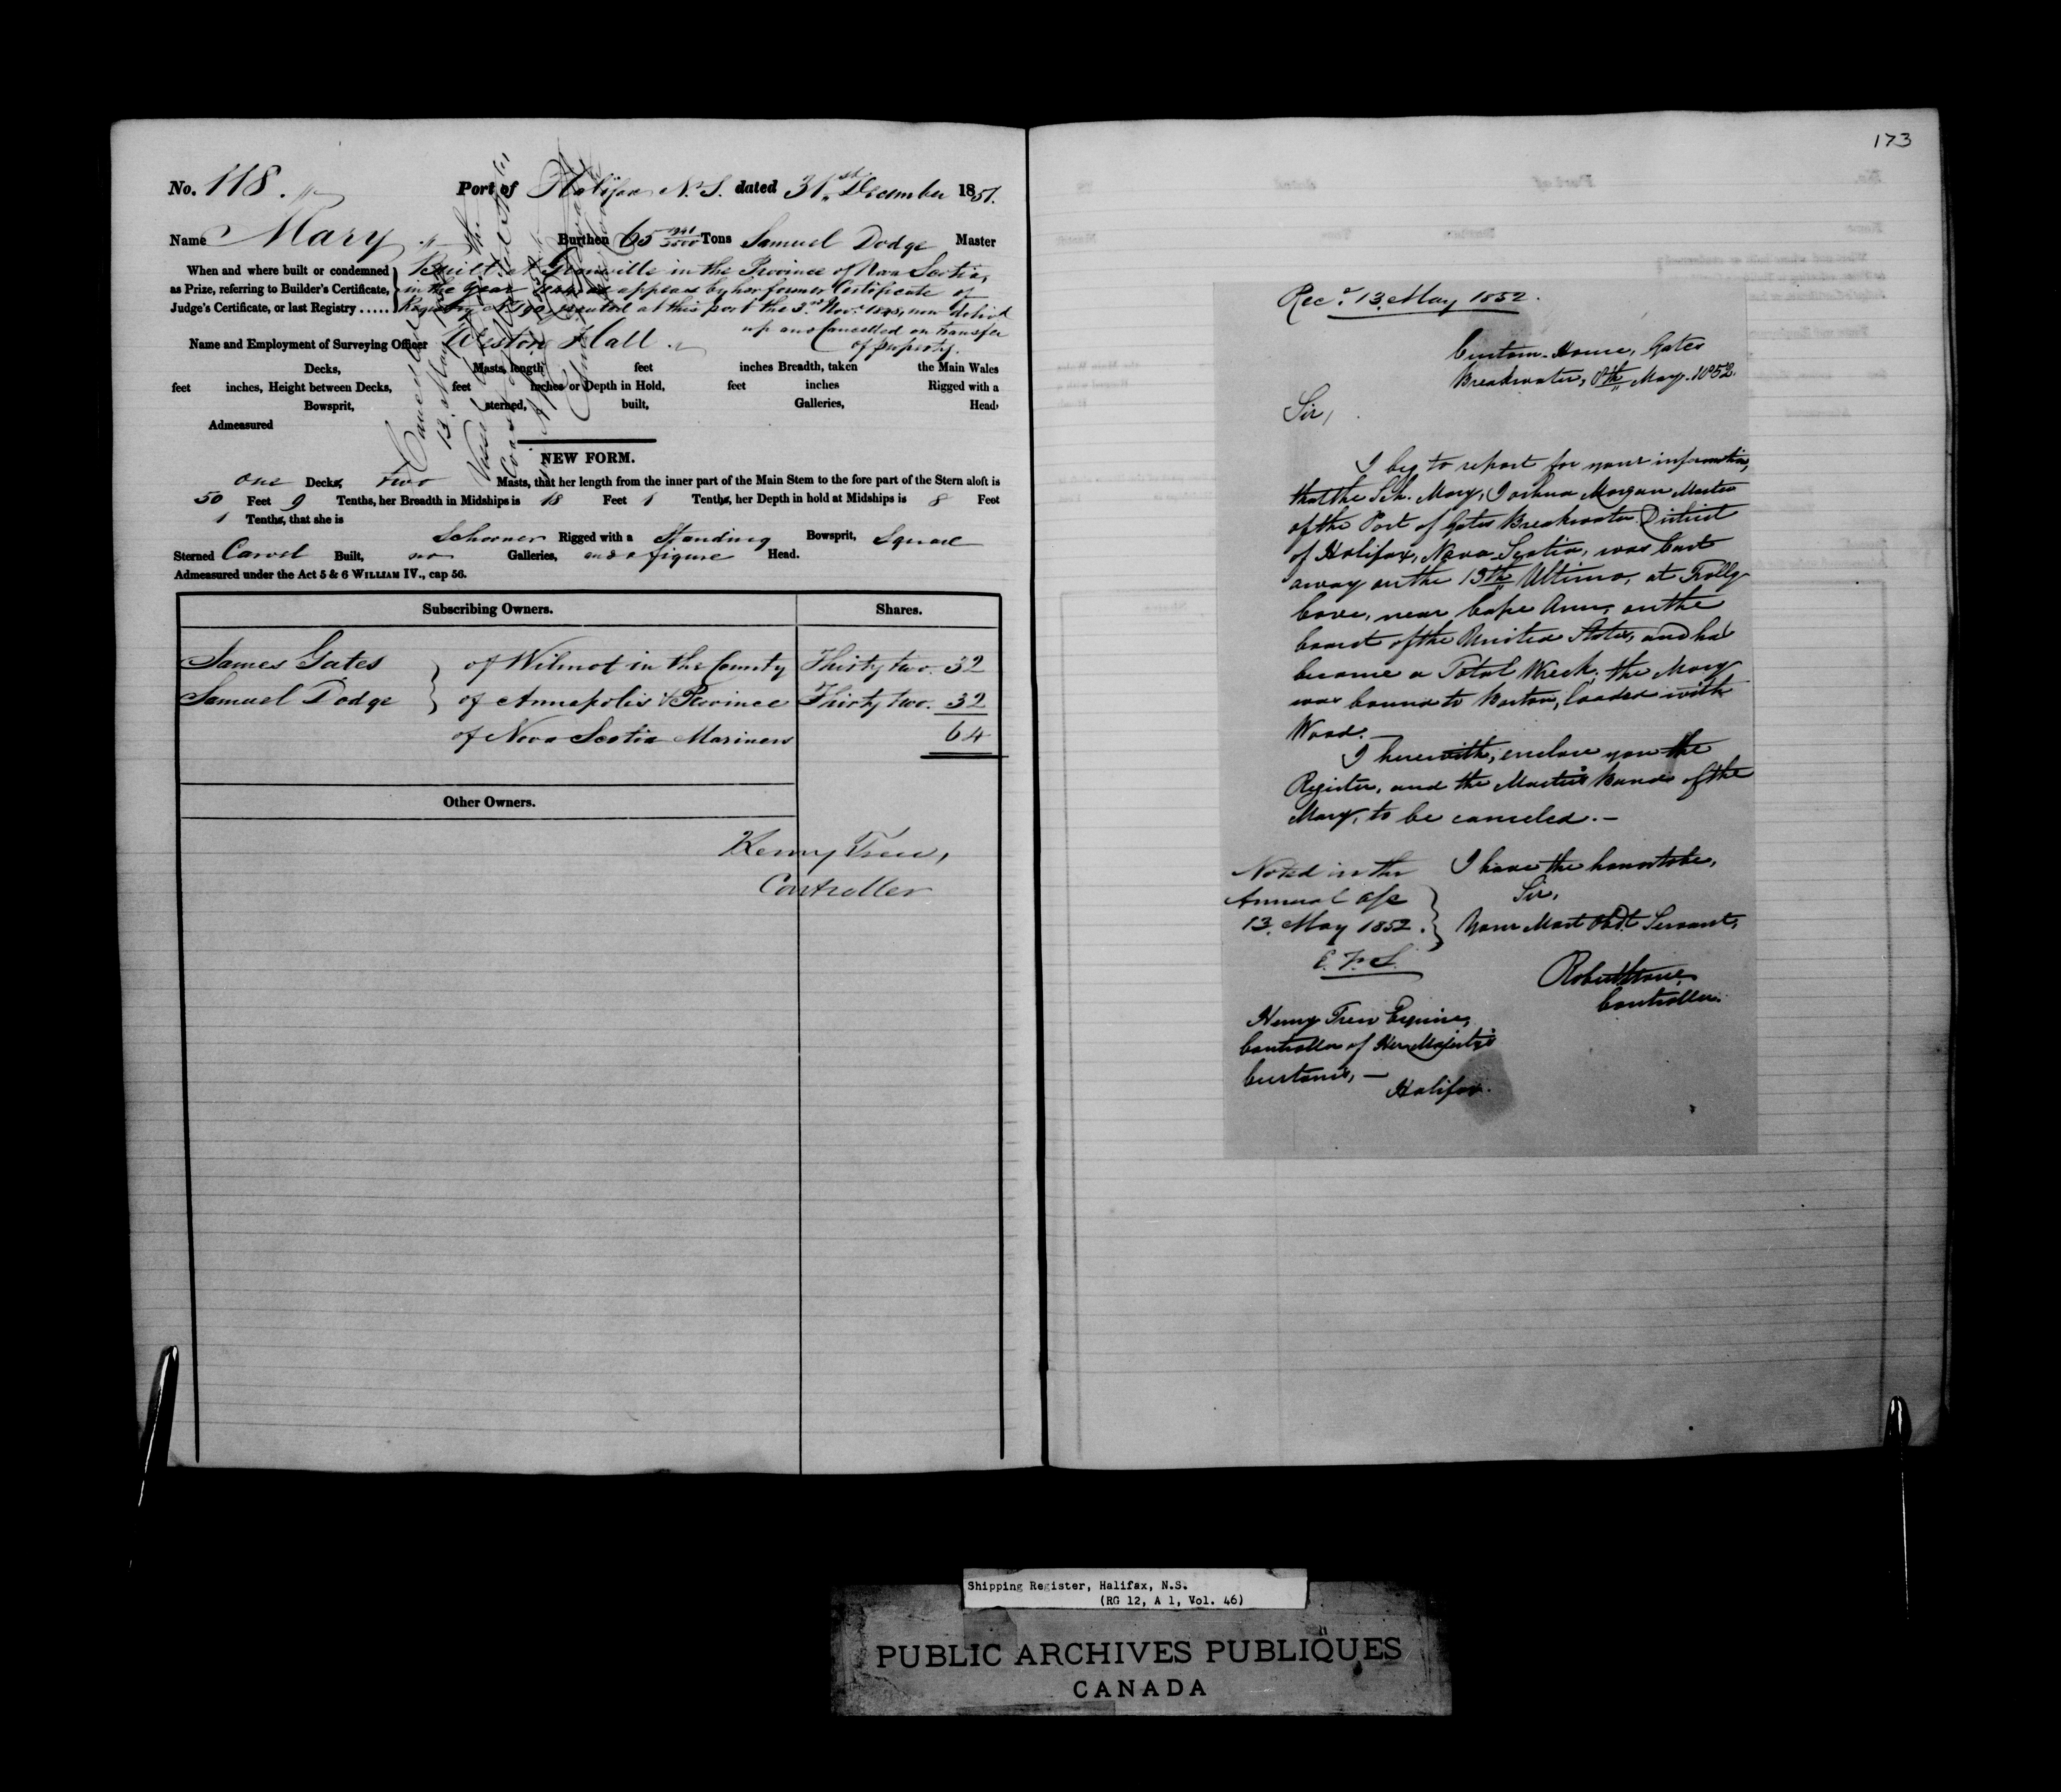 No. 118.
Port of Halifax N.S. dated 31st December 1851.
Name Mary
Burthen 65 Tons Samuel Dodge Master
When and where built or condemned as Prize, referring to Builder's Certificate, Judge's Certificate, or last Registry .....
Built at Granville in the Province of Nova Scotia,
in the Year as appears by her former Certificate of
Registry No 190 granted at this port the 3rd Novr. now delivd
up and Cancelled on transfer
of property.
Name and Employment of Surveying Officer Weston Hall
Decks, Masts, length feet inches Breadth, taken the Main Wales
feet inches, Height between Decks, feet inches or Depth in Hold, feet inches Rigged with a
Bowsprit, sterned, built, Galleries, Head,
Admeasured
Cancelled
13. May
NEW FORM.
one Decks, two Masts, that her length from the inner part of the Main Stem to the fore part of the Stern aloft is
50 Feet 9 Tenths, her Breadth in Midships is 18 Feet 1 Tenths, her Depth in hold at Midships is 8 Feet
1 Tenths, that she is
Schooner Rigged with a Standing Bowsprit, Square
Sterned Carvel Built, no Galleries, and a figure Head.
Admeasured under the Act 5 & 6 WILLIAM IV., cap 56.
Subscribing Owners. Shares.
James Gates } of Wilmot in the County Thirty two. 32
Samuel Dodge } of Annapolis & Province Thirty two. 32
of Nova Scotia Mariners 64
Other Owners.
Henry Trew,
Controller
173
Recd. 13 May 1852.
Custom-House, Gates
Breakwater, 8th May 1852.
Sir,
I beg to report for your information,
that the Sch. Mary, Joshua Morgan Master
of the Port of Gates Breakwater District
of Halifax, Nova Scotia, was cast
away on the 19th Ultimo, at Folly
Cove, near Cape Ann, on the
Coast of the United States, and has
become a Total Wreck. the Mary
was bound to Boston, loaded with
Wood.—
I herewith, enclose you the
Register, and the Master's Bonds of the
Mary, to be canceled.—
I have the honor to be,
Sir,
Your Most Obdt Servant,
Robert Stone
Controller.
Noted in the
Annual a/c
13. May 1852.
E. F. S.
Henry Trew Esquire,
Controller of Her Majesty's
Customs,—
Halifax.
Shipping Register, Halifax, N.S.
(RG 12, A 1, Vol. 46)
PUBLIC ARCHIVES PUBLIQUES
CANADA